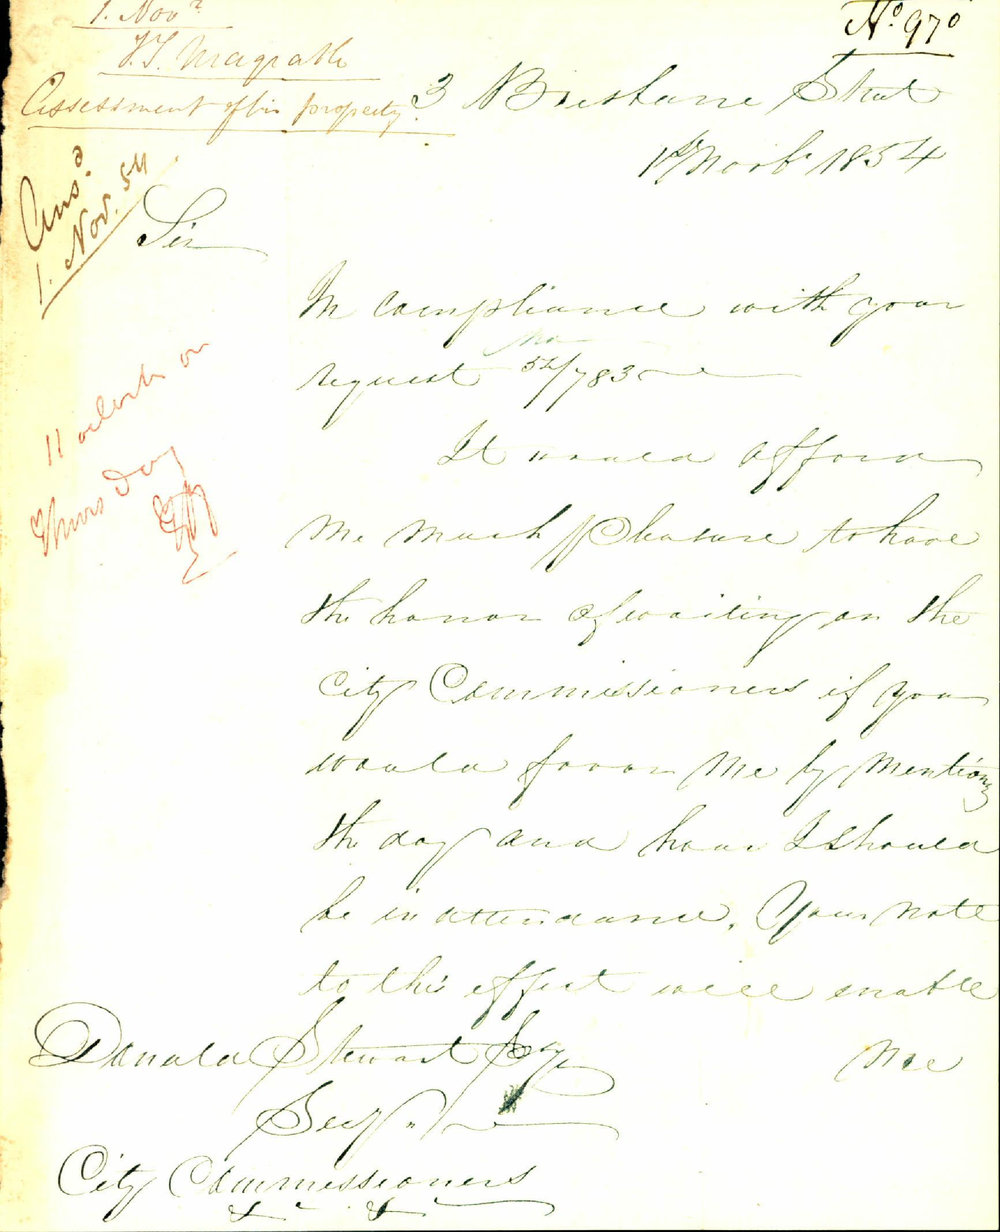 1. Nov.r
No. 970
T.T. Magrath
Assessment of his property.
3 Brisbane Street
1st Novbr 1854
Ansd
1. Nov. 54
Sir
In compliance with your
request No 54/783
11 oclock on
Thursday
It would afford
me much pleasure to have
the honor of waiting on the
City Commissioners if you
would favor me by mentiong
the day and hour I should
be in attendance. Your note
to this effect will enable
me
Donald Stewart Esqr
Secy
City Commissioners
&c &c